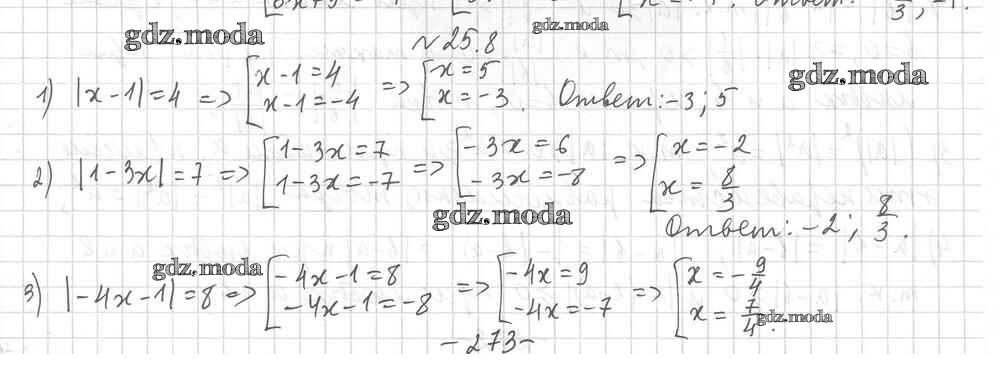 gdz.moda
gdz.moda
№25.8
gdz.moda
1) |x-1|=4 => [x-1=4 x-1=-4 => [x=5 x=-3. Ответ: -3; 5
2) |1-3x|=7 => [1-3x=7 1-3x=-7 => [-3x=6 -3x=-8 => [x=-2 x=8/3
gdz.moda
Ответ: -2; 8/3.
gdz.moda
3) |-4x-1|=8 => [-4x-1=8 -4x-1=-8 => [-4x=9 -4x=-7 => [x=-9/4 x=7/4.
gdz.moda
-273-